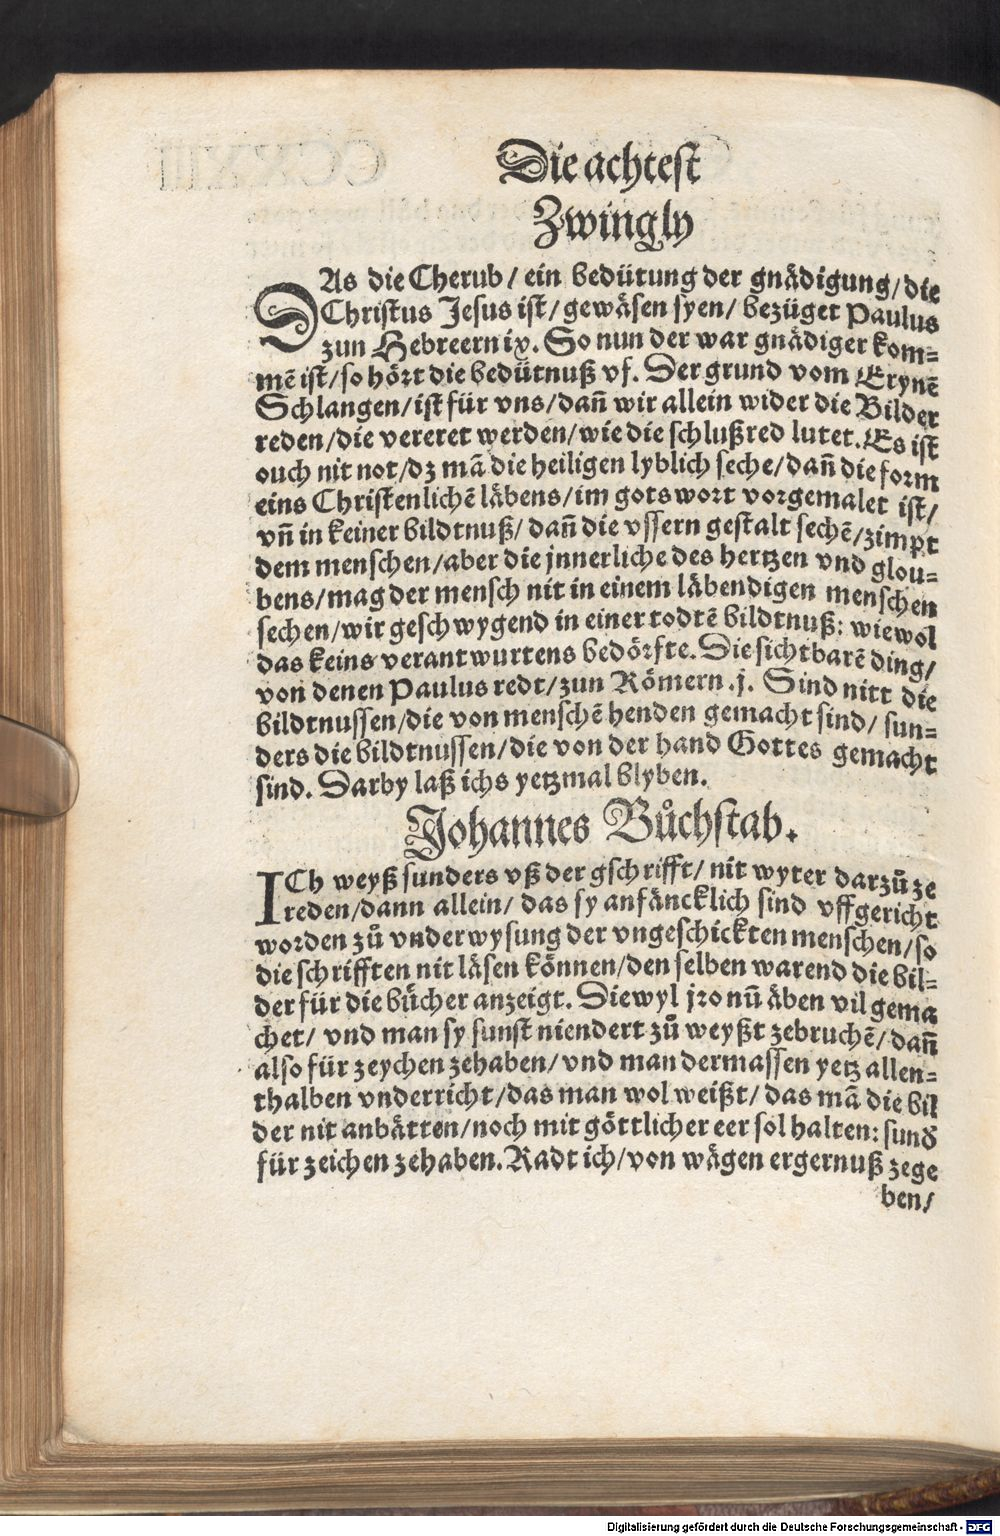 Die achtest
Zwingly
DAs die Cherub/ ein bedütung der gnädigung/die
Christus Jesus ist/gewäsen syen/ bezüget Paulus
zun Hebreern ix. So nun der war gnädiger kom⸗
mẽ ist/so hört die bedütnuß vf. Der grund vom Erynẽ
Schlangen/ist für vns/dañ wir allein wider die Bilder
reden/die vereret werden/wie die schlußred lutet. Es ist
ouch nit not/dz mã die heiligen lyblich seche/dañ die form
eins Christenlichẽ läbens/im gotswort vorgemalet ist/
vñ in keiner bildtnuß/ dañ die vssern gestalt sechẽ/zimpt
dem menschen/aber die jnnerliche des hertzen vnd glou⸗
bens/mag der mensch nit in einem läbendigen menschen
sechen/wir geschwygend in einer todtẽ bildtnuß: wiewol
das keins verantwurtens bedörfte. Die sichtbarẽ ding/
von denen Paulus redt/zun Römern .j. Sind nitt die
bildtnussen/die von menschẽ henden gemacht sind/ sun⸗
ders die bildtnussen/die von der hand Gottes gemacht
sind. Darby laß ichs yetzmal blyben.
Johannes Bůchstab.
ICh weyß sunders vß der gschrifft/ nit wyter darzů ze
reden/dann allein/ das sy anfäncklich sind vffgericht
worden zů vnderwysung der vngeschickten menschen/so
die schrifften nit läsen können/den selben warend die bil⸗
der für die bücher anzeigt. Diewyl jro nũ äben vil gema
chet/ vnd man sy sunst niendert zů weyßt zebruchẽ/dañ
also für zeychen zehaben/vnd man dermassen yetz allen⸗
thalben vnderricht/das man wol weißt/das mã die bil
der nit anbätten/noch mit göttlicher eer sol halten: sund
für zeichen zehaben. Radt ich/von wägen ergernuß zege
ben/
Digitalisierung gefördert durch die Deutsche Forschungsgemeinschaft - DFG